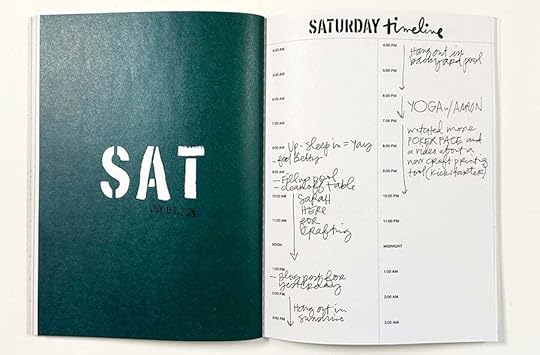 SAT
SATURDAY timeline
4:00 AM
5:00 AM
6:00 AM
7:00 AM
8:00 AM
Up - Sleep in = Yay
feed Betty
9:00 AM
- Fill up pool
- clean off table
10:00 AM
SARAH
11:00 AM
HERE
FOR
crafting
NOON
1:00 PM
- Blog post for
yesterday
2:00 PM
Hang out in
sunshine
3:00 PM
4:00 PM
Hang out in
backyard pool
5:00 PM
6:00 PM
YOGA w/ AARON
7:00 PM
watched more
POKER FACE and
8:00 PM
a video about a
new craft
tool (kickstarter)
9:00 PM
10:00 PM
11:00 PM
MIDNIGHT
1:00 AM
2:00 AM
3:00 AM